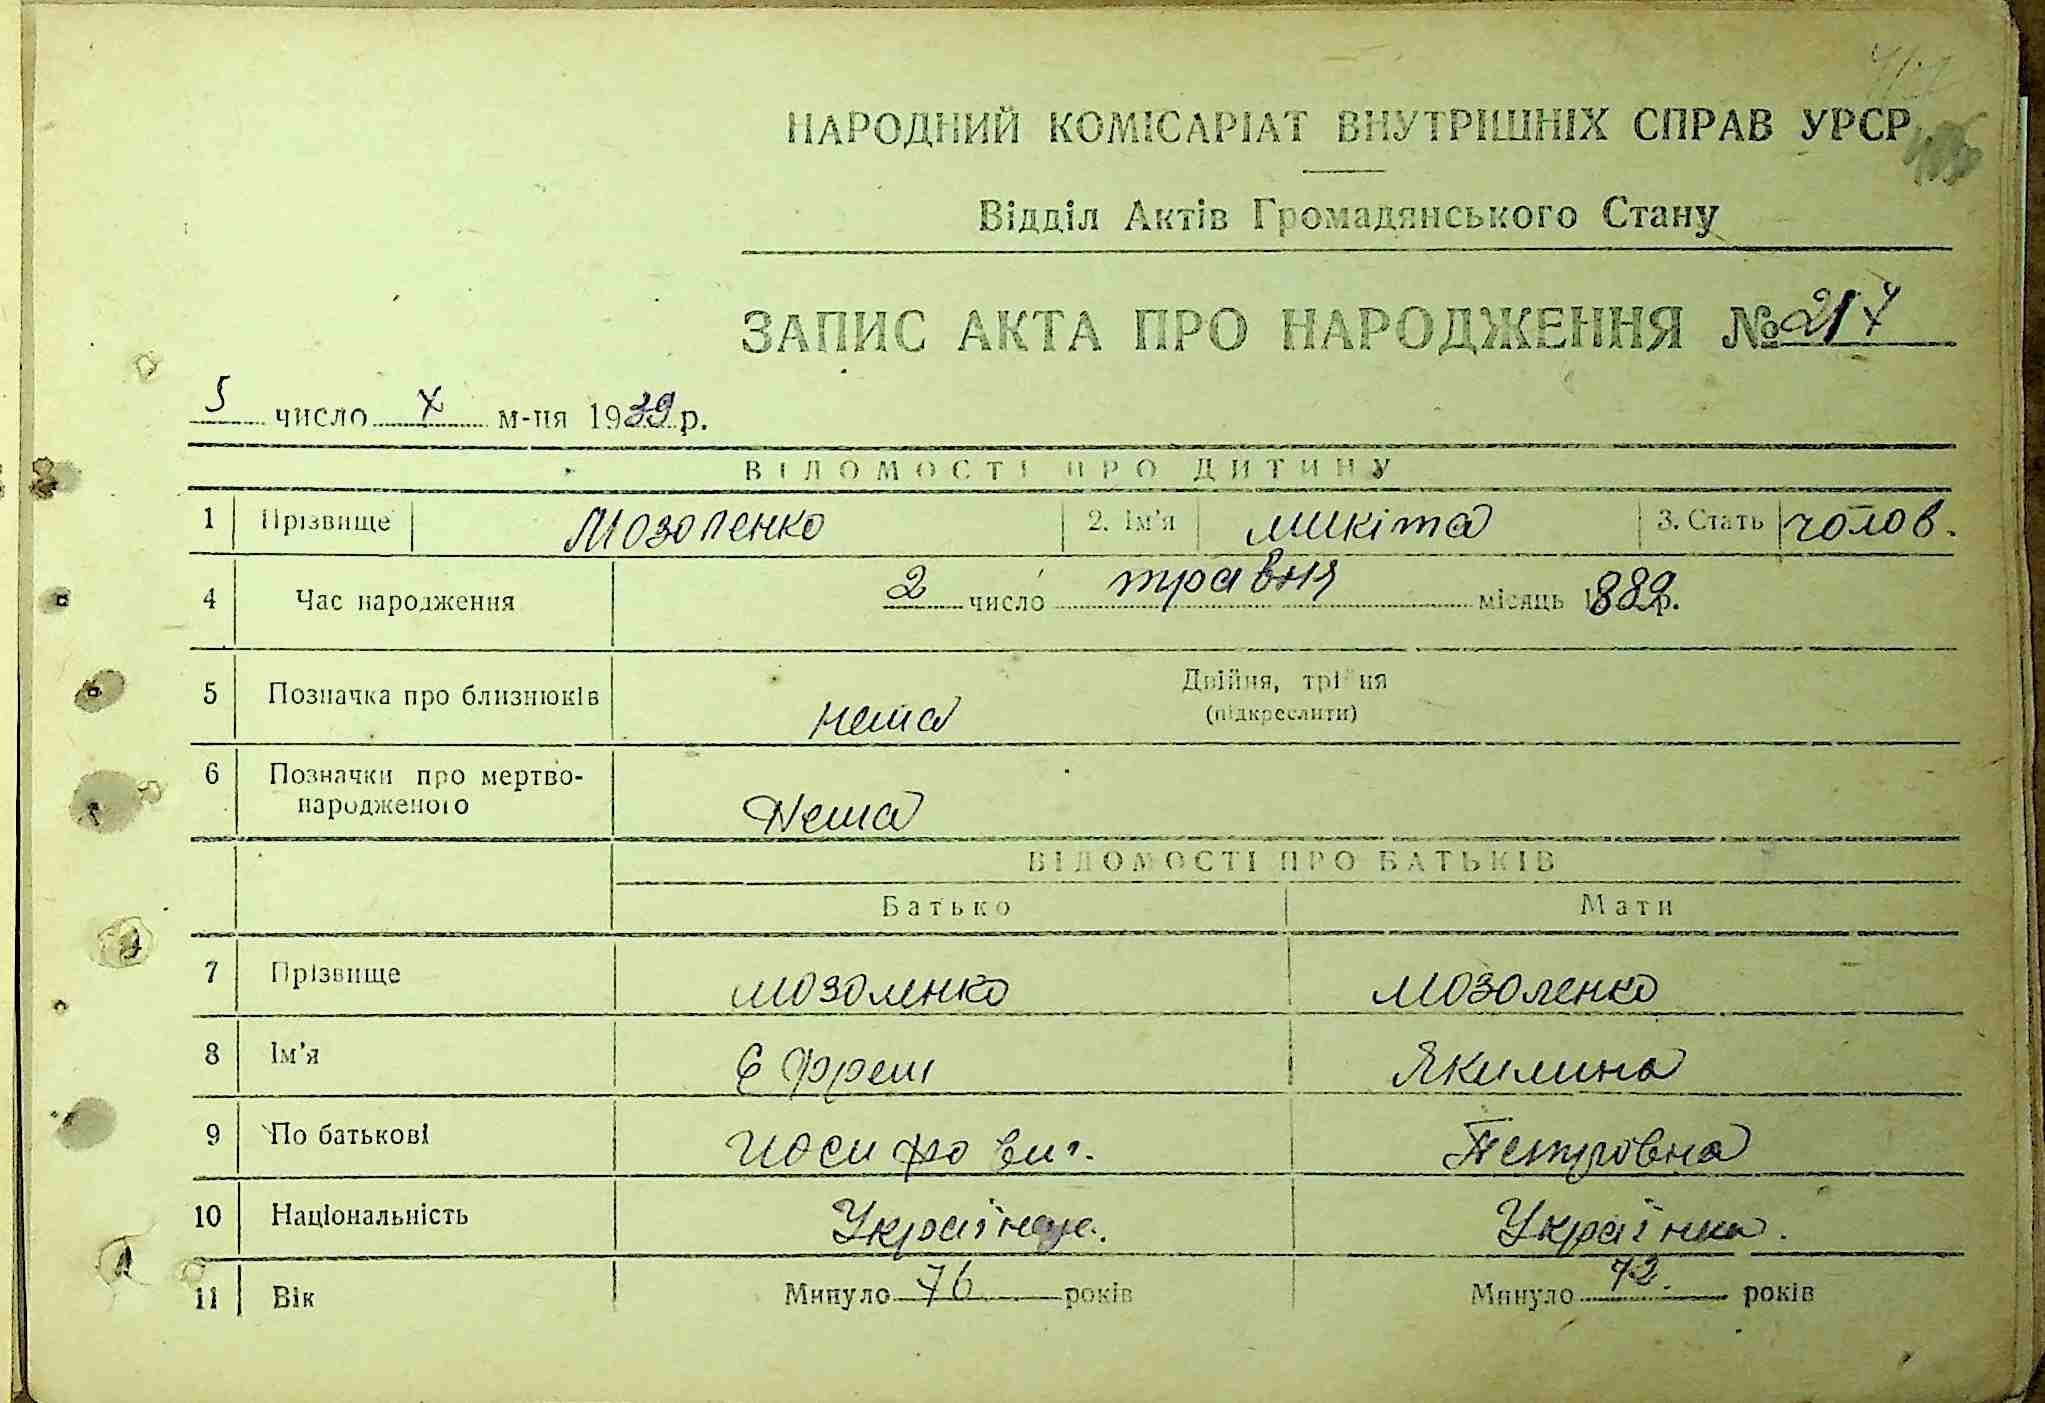 НАРОДНИЙ КОМІСАРІАТ ВНУТРІШНІХ СПРАВ УРСР
Відділ Актів Громадянського Стану
ЗАПИС АКТА ПРО НАРОДЖЕННЯ № 217
5 число X м-ця 1939 р.
ВІДОМОСТІ ПРО ДИТИНУ
1 Прізвище Мозоленко 2. Ім'я микіта 3. Стать чолов.
4 Час народження 2 число травня місяць 1889 р.
5 Позначка про близнюків нема Двійня, трійня
(підкреслити)
6 Позначки про мертво-
народженого Нема
ВІДОМОСТІ ПРО БАТЬКІВ
Батько Мати
7 Прізвище мозоленко мозоленко
8 Ім'я Єфрем Якилина
9 По батькові Иосифович. Петровна
10 Національність Українец. Українка.
11 Вік Минуло 76 років Минуло 72. років